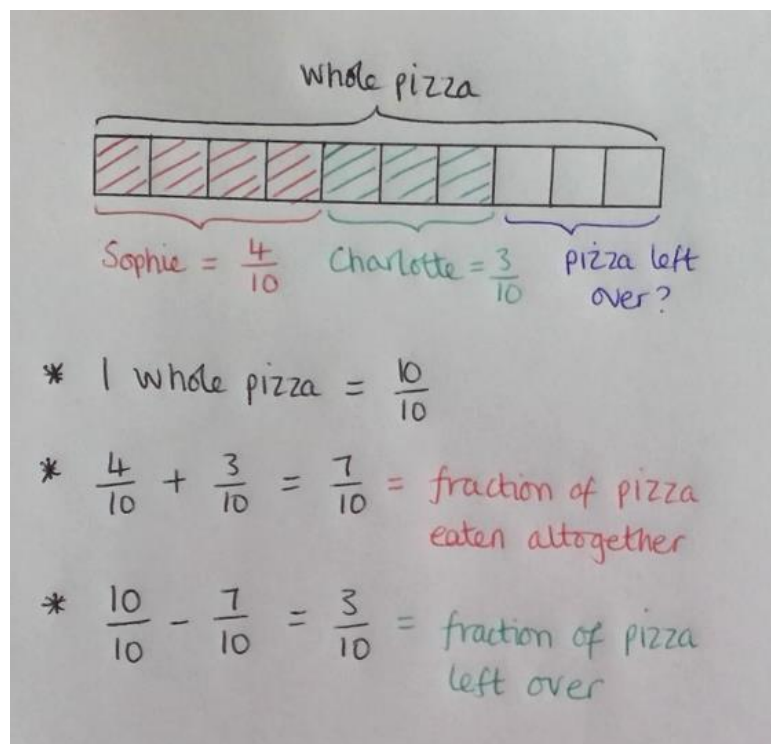 whole pizza
Sophie = 4/10 Charlotte = 3/10 pizza left
over?
* 1 whole pizza = 10/10
* 4/10 + 3/10 = 7/10 = fraction of pizza
eaten altogether
* 10/10 - 7/10 = 3/10 = fraction of pizza
left over